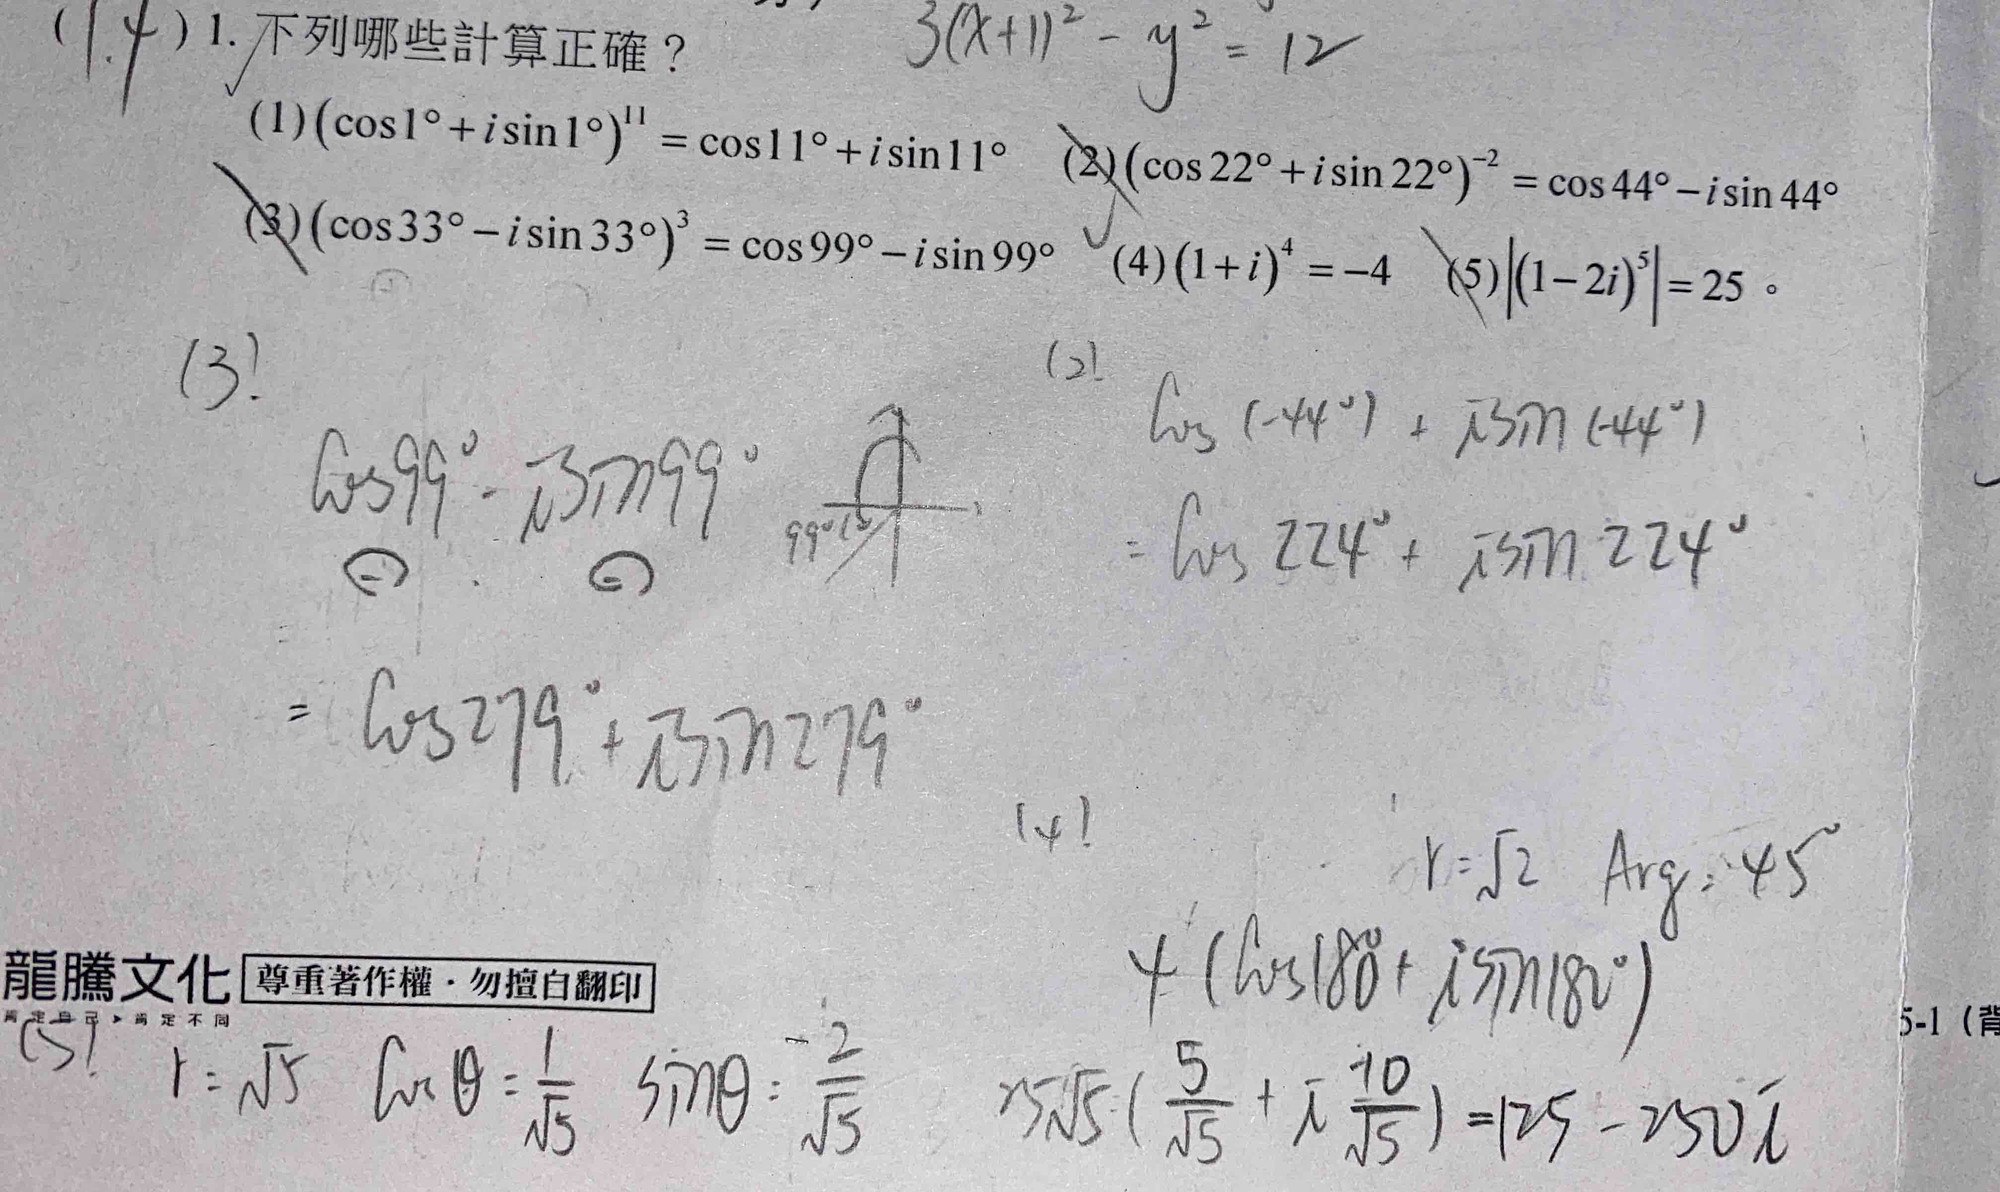 (1.4) 1. 下列哪些計算正確？
3(x+1)² - y² = 12
(1) (cos1°+isin1°)¹¹ = cos11°+isin11° (2) (cos22°+isin22°)⁻² = cos44°-isin44°
(3) (cos33°-isin33°)³ = cos99°-isin99° (4) (1+i)⁴ = -4 (5) |(1-2i)⁵| = 25。
(3)
cos99° - isin99°
= cos279° + isin279°
(2)
cos(-44°) + isin(-44°)
= cos224° + isin224°
(4)
r=√2 Arg=45°
4(cos180°+isin180°)
龍騰文化 尊重著作權·勿擅自翻印
肯定自己▸肯定不同
5-1（背
(5) r=√5 cosθ=1/√5 sinθ=-2/√5 25√5(5/√5 + i -10/√5) =125-250i